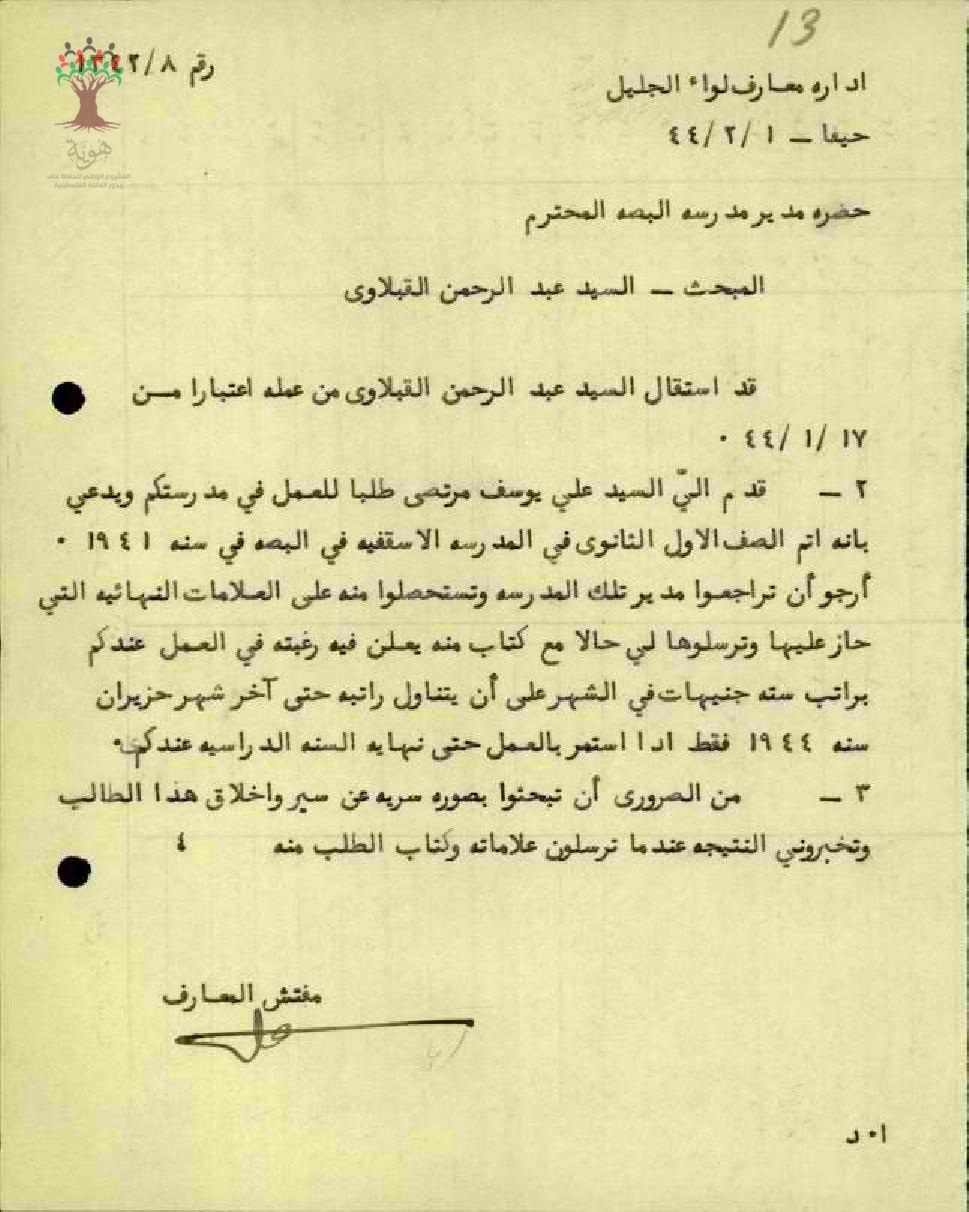 13
رقم ٨/ ١٣٤٢
هوية
المشروع الوطني للحفاظ على
جذور العائلة الفلسطينية
اداره معارف لواء الجليل
حيفا – ١ /٢ /٤٤
حضره مدير مدرسه البصه المحترم
المبحث – السيد عبد الرحمن القبلاوى
قد استقال السيد عبد الرحمن القبلاوى من عمله اعتبارا مــن
١٧ /١ /٤٤ ٠
٢ – قدم اليّ السيد علي يوسف مرتضى طلبا للعمل في مدرستكم ويدعي
بانه اتم الصف الاول الثانوى في المدرسه الاسقفيه في البصه في سنه ١٩٤١ ٠
أرجو أن تراجعوا مدير تلك المدرسه وتستحصلوا منه على العلامات النهائيه التي
حاز عليها وترسلوها لي حالا مع كتاب منه يعلن فيه رغبته في العمل عندكم
براتب سته جنيهات في الشهر على أن يتناول راتبه حتى آخر شهر حزيران
سنه ١٩٤٤ فقط اذا استمر بالعمل حتى نهايه السنه الدراسيه عندكم٠
٣ – من الضرورى أن تبحثوا بصوره سريه عن سير واخلاق هذا الطالب
وتخبروني النتيجه عندما ترسلون علاماته وكتاب الطلب منه ٤
مفتش المعارف
ا٠ د